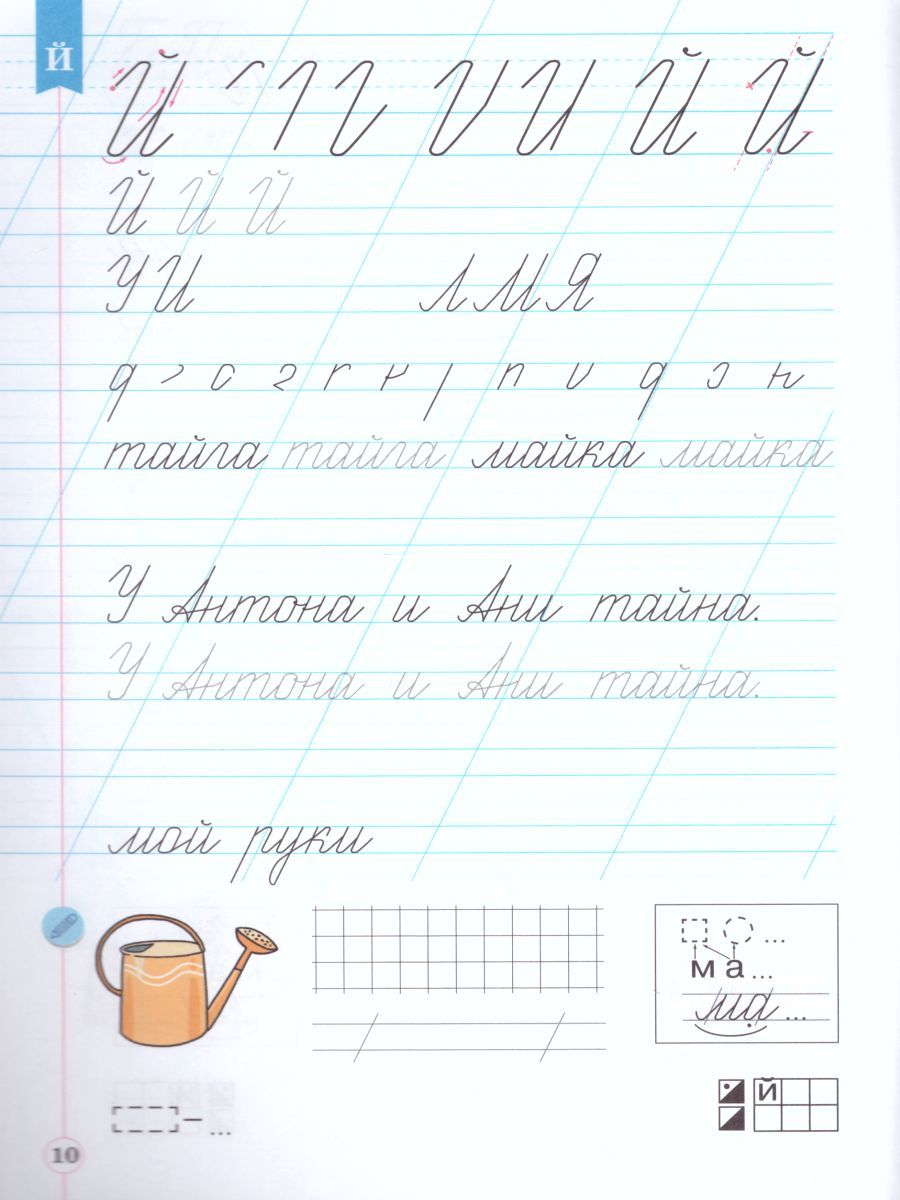 Й
Й И Й Й
Й Й Й
У И Л М Я
тайга тайга майка майка
У Антона и Ани тайна.
У Антона и Ани тайна.
мой руки
...
м а ...
ма ...
й
– ...
10